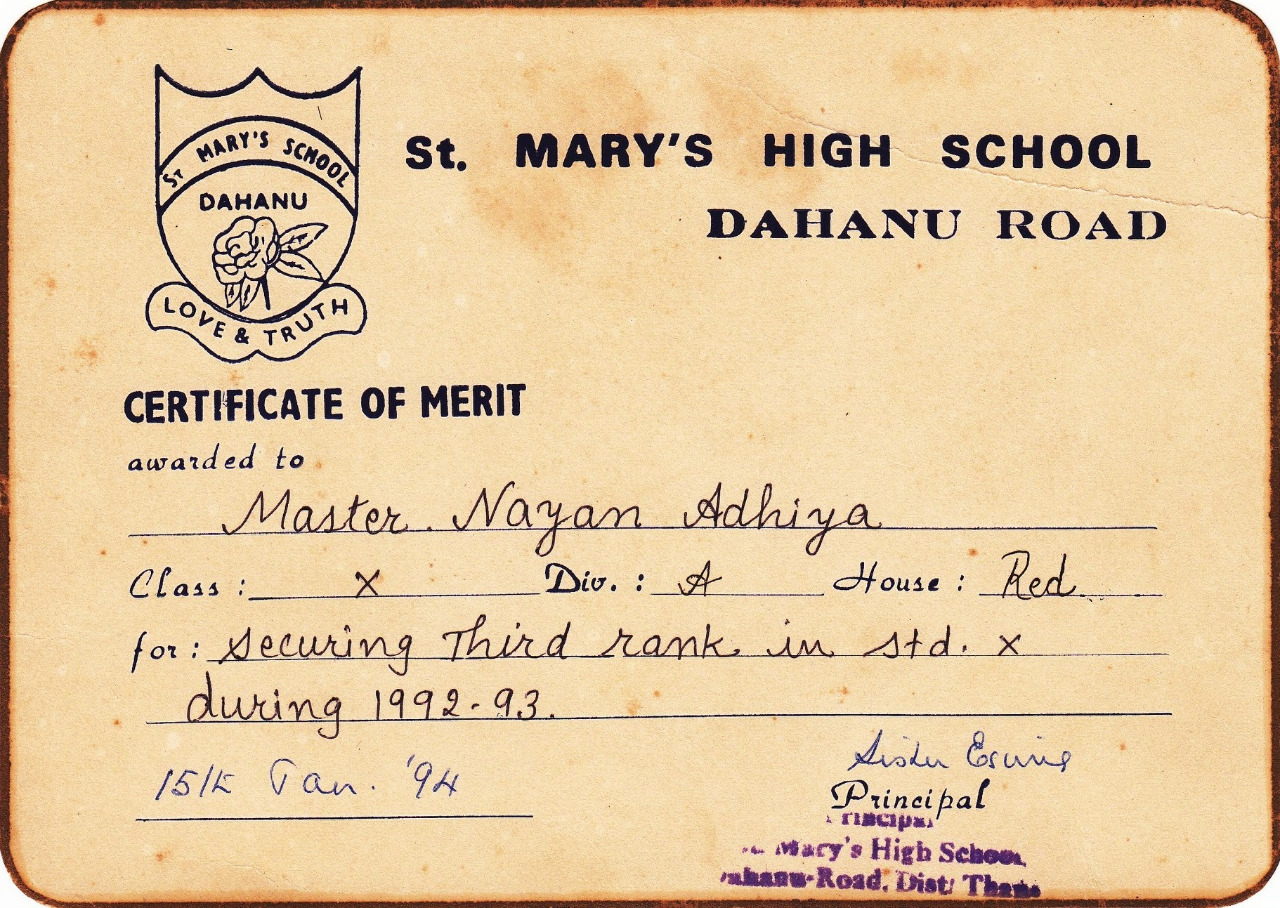 St MARY'S SCHOOL
DAHANU
LOVE & TRUTH
St. MARY'S HIGH SCHOOL
DAHANU ROAD
CERTIFICATE OF MERIT
awarded to
Master. Nayan Adhiya
Class : X Div. : A House : Red
for : securing Third rank in std. X
during 1992-93.
15th Jan. '94
Sister
Principal
Principal
Mary's High School
Dahanu-Road, Dist: Thane